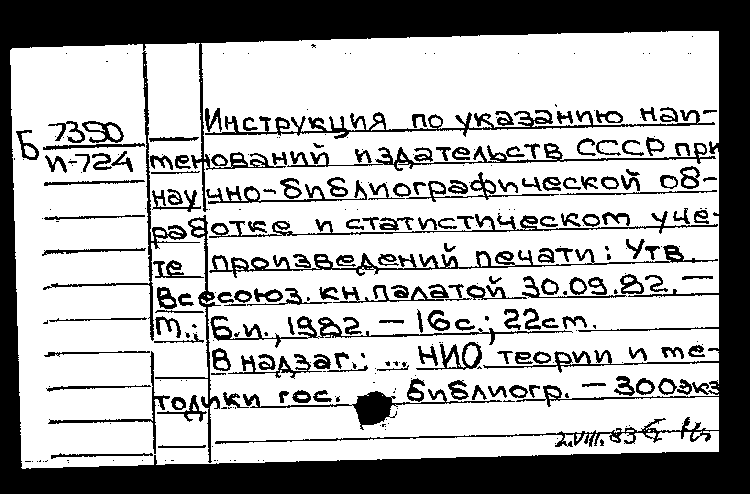 Б 7350
И-724
Инструкция по указанию наи-
менований издательств СССР при
научно-библиографической об-
работке и статистическом уче-
те произведений печати: Утв.
Всесоюз. кн. палатой 30.09.82. —
М.: Б.и., 1982. — 16 с.; 22 см.
В надзаг.: ... НИО теории и ме-
тодики гос. библиогр. — 300 экз
2.VIII.83